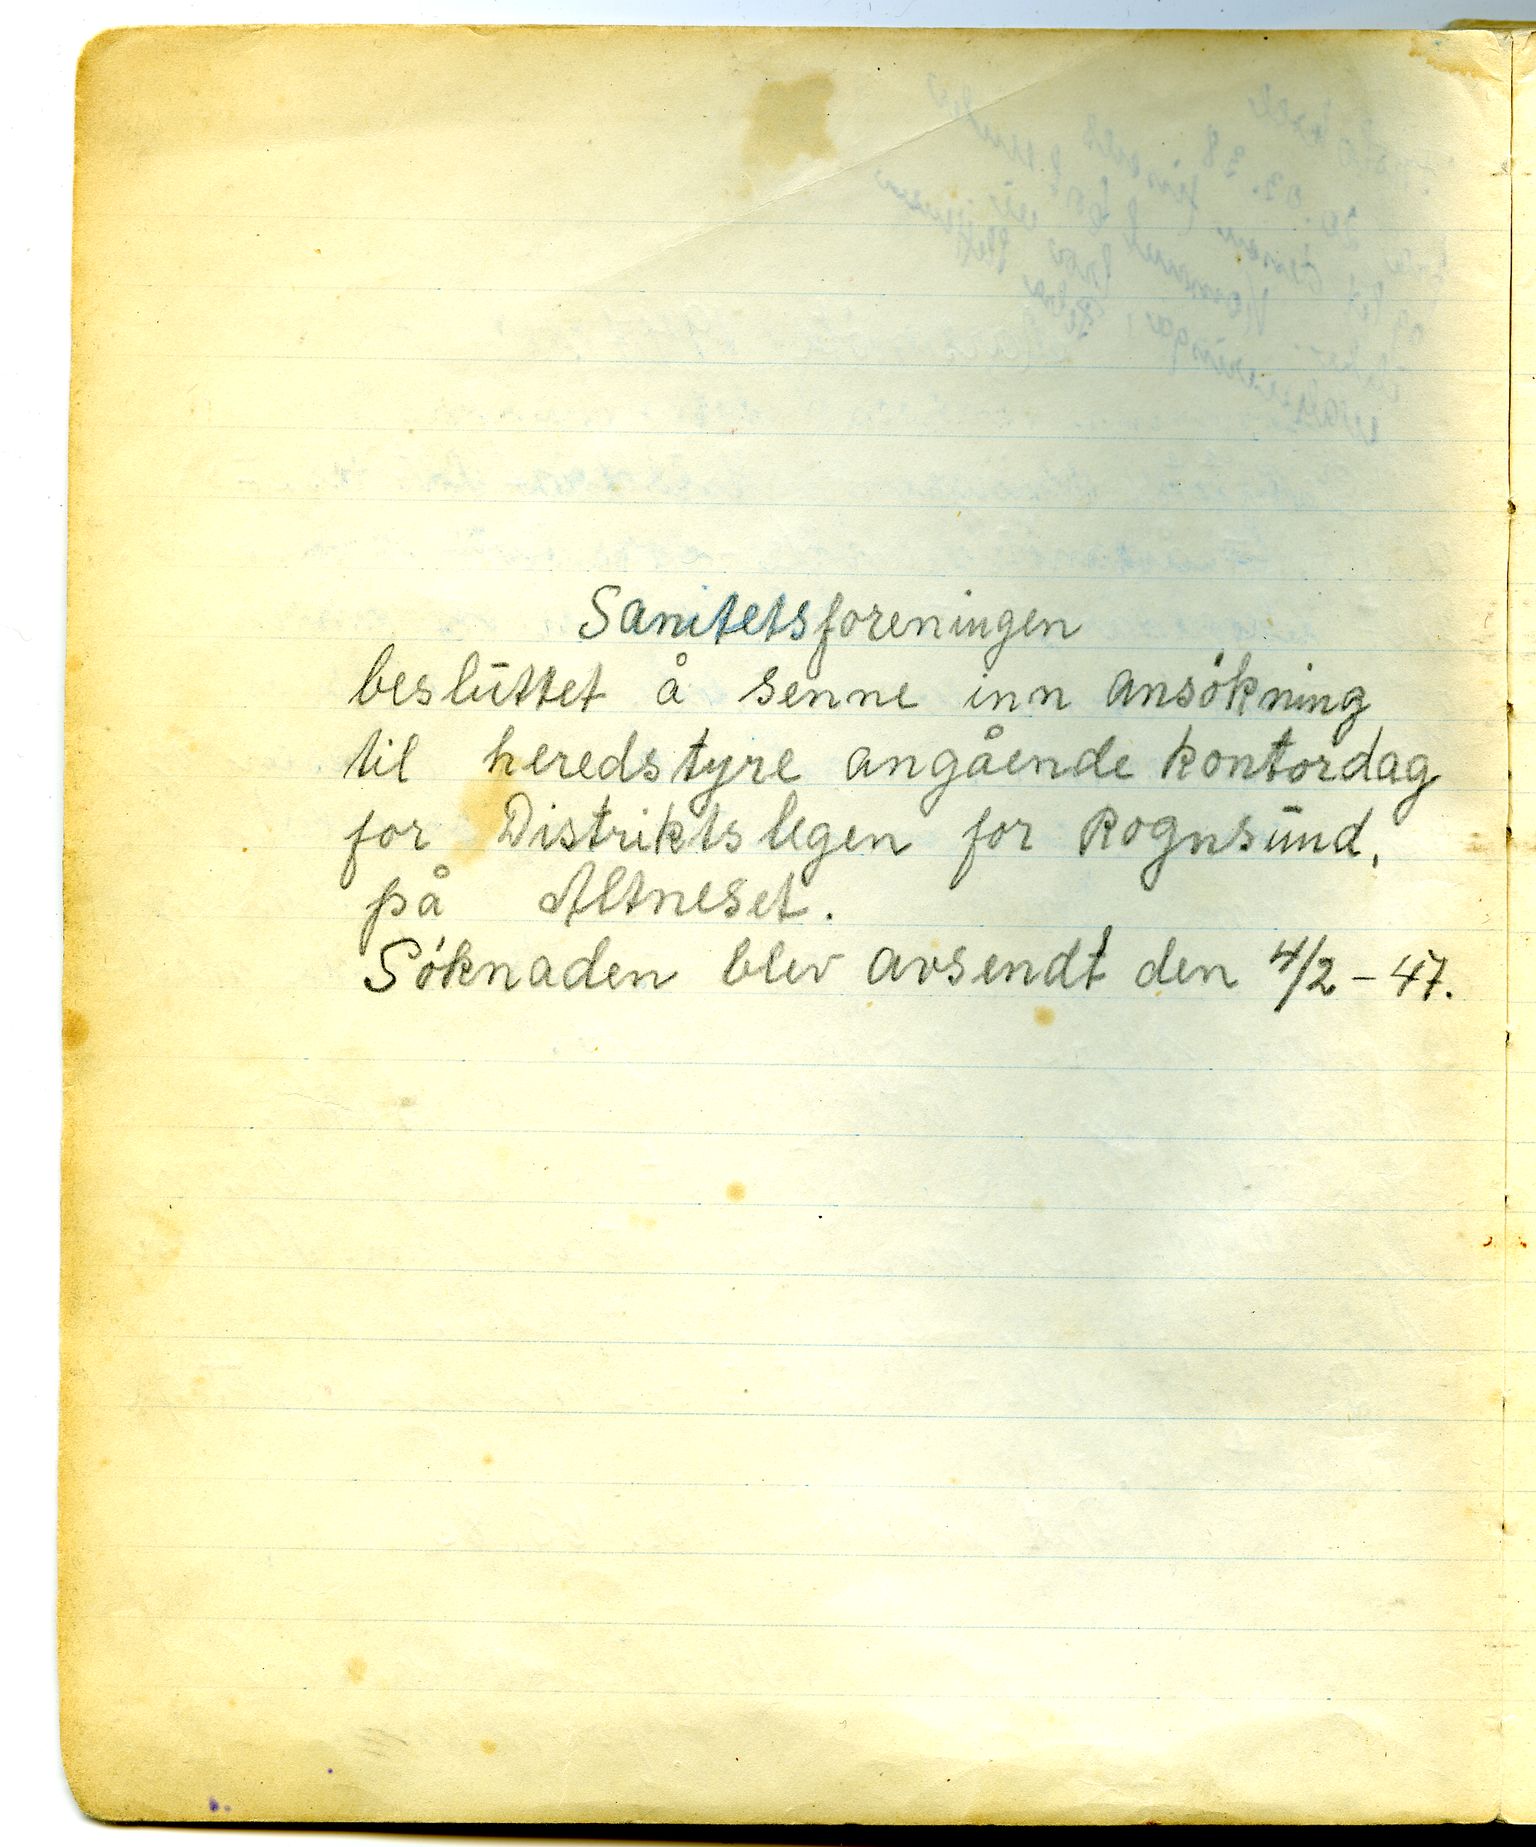 Sanitetsforeningen
beslūttet å senne inn ansókning
til heredstyre angående kontordag
for Distriktslegen for Rognsūnd,
på Altneset.
Sóknaden blev avsendt den 4/2 - 47.